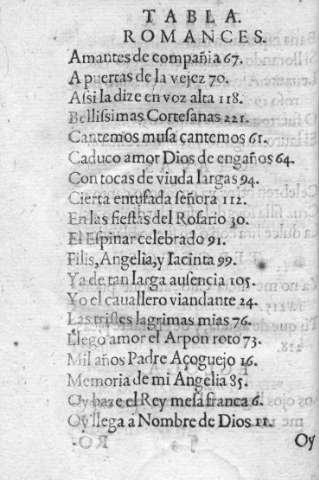 TABLA.
ROMANCES.
Amantes de compañia 67.
A puertas de la vejez 70.
Assi la dize en voz alta 118.
Bellissimas Cortesanas 221.
Cantemos musa cantemos 61.
Caduco amor Dios de engaños 64.
Con tocas de viuda largas 94.
Cierta entufada señora 112.
En las fiestas del Rosario 30.
El Espinar celebrado 91.
Filis, Angelia, y Iacinta 99.
Ya de tan larga ausencia 105.
Yo el cauallero viandante 24.
Las tristes lagrimas mias 76.
Llego amor el Arpon roto 73.
Mil años Padre Açoguejo 16.
Memoria de mi Angelia 85.
Oy haze el Rey mesa franca 6.
Oy llega a Nombre de Dios 11.
Oy